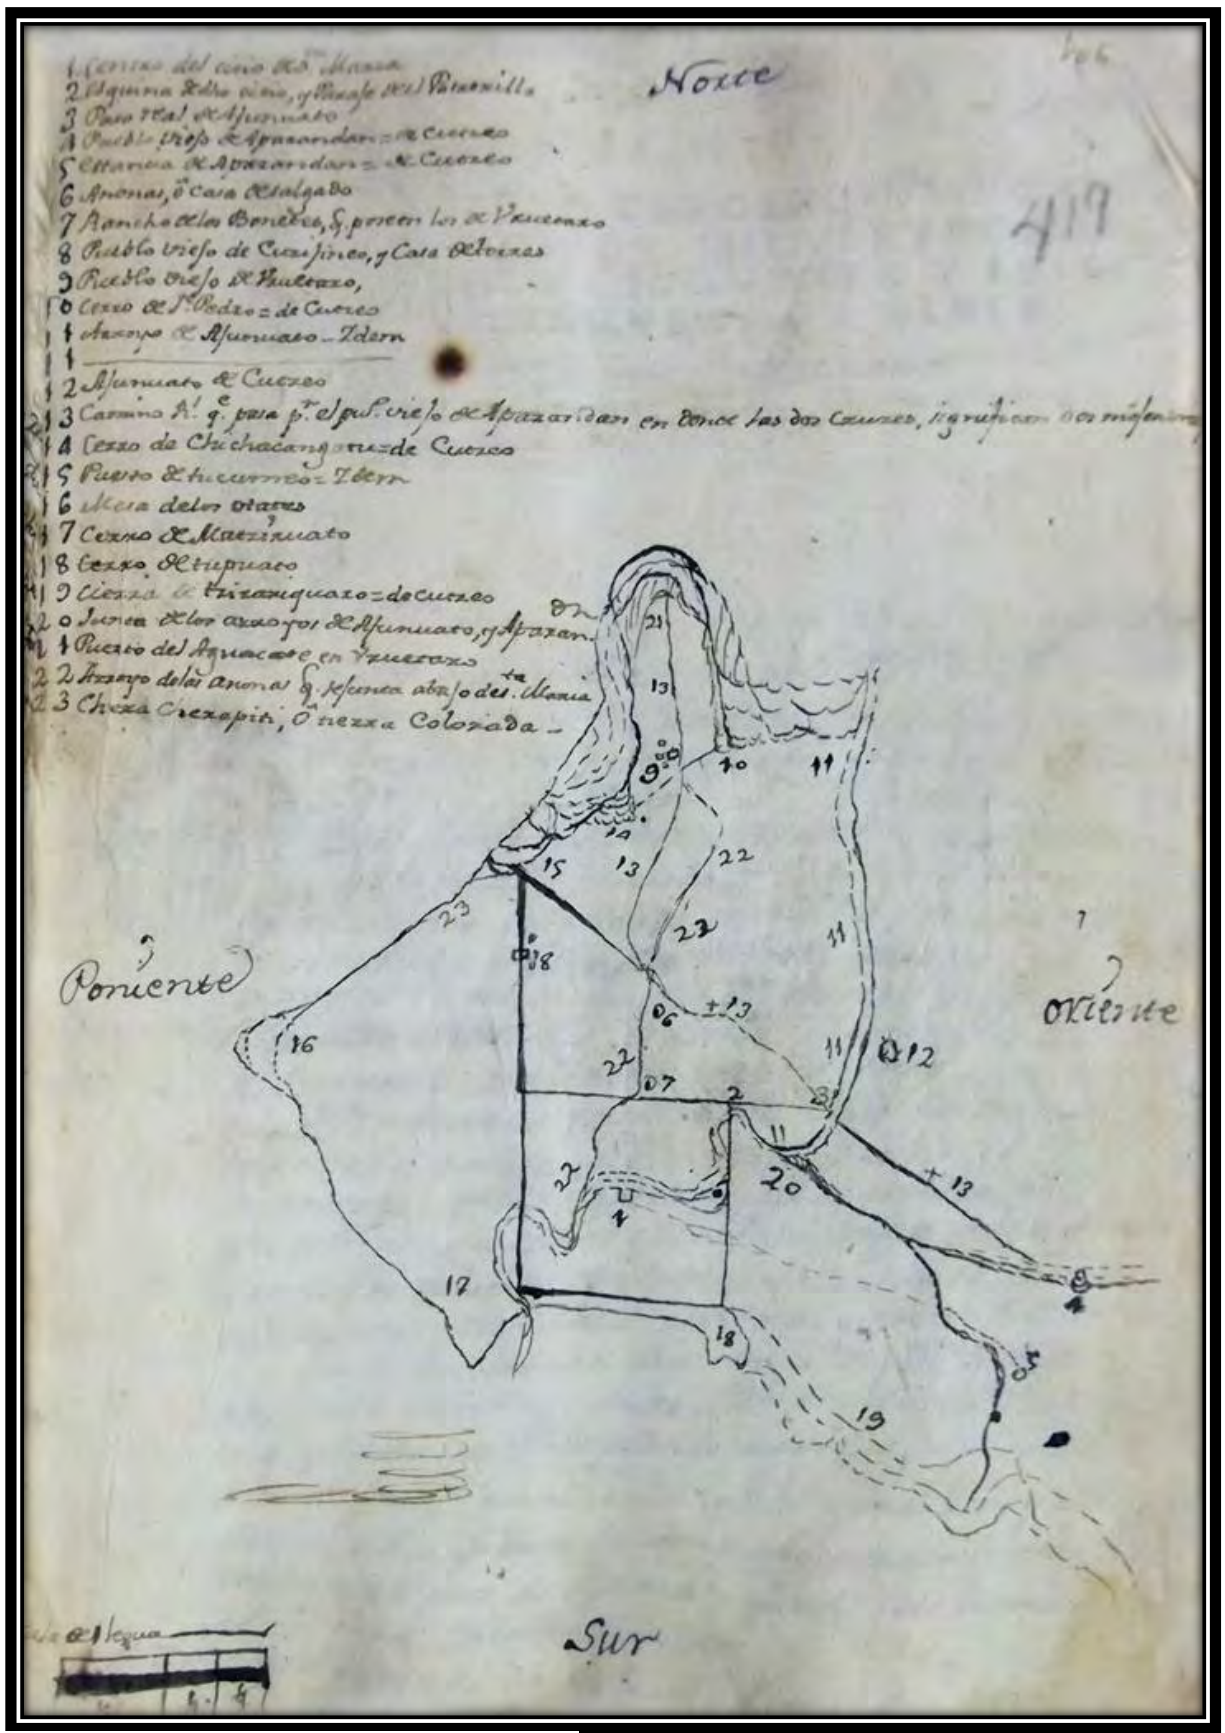 Norte
419
1 Centro del citio de Sta Maria
2 Esquina de dho citio, y Paraje del
3 Paso real de Ajunuato
4 Pueblo viejo de Aparandan = de Cutzeo
5 Estancia de Aparandan = de Cutzeo
6 Anonas, ô Casa de Salgado
7 Rancho de los Bonetes, q. poseen los de Vruetaro
8 Pueblo viejo de Curijineo, y Casa de torres
9 Pueblo viejo de Vruetaro,
10 Cerro de Sn. Pedro = de Cutzeo
11 Arroyo de Ajunuato - Idem
1
12 Ajunuato de Cutzeo
13 Camino Rl. qe. pasa pr. el pu.o viejo de Aparandan en donde las dos Cruzes, significan dos
14 Cerro de = de Cutzeo
15 Puerto de tucumeo = Idem
16 Mesa de los otates
17 Cerro de Matzinuato
18 Cerro de tupuato
19 Cierra de tziraniquaro = de Cutzeo
20 Junta de los arroyos de Ajunuato, y Aparan
dn
21 Puerto del Aguacate en Vruetaro
22 Arroyo de las anonas q. se junta abajo de Sta. Maria
23 Cherapiti, ô tierra Colorada -
21
13
9
10
11
14
15
13
22
23
22
11
8
Poniente
Oriente
6
+13
16
11
12
22
7
2
3
11
20
22
1
+ 13
4
17
18
5
19
Sur
de 1 legua